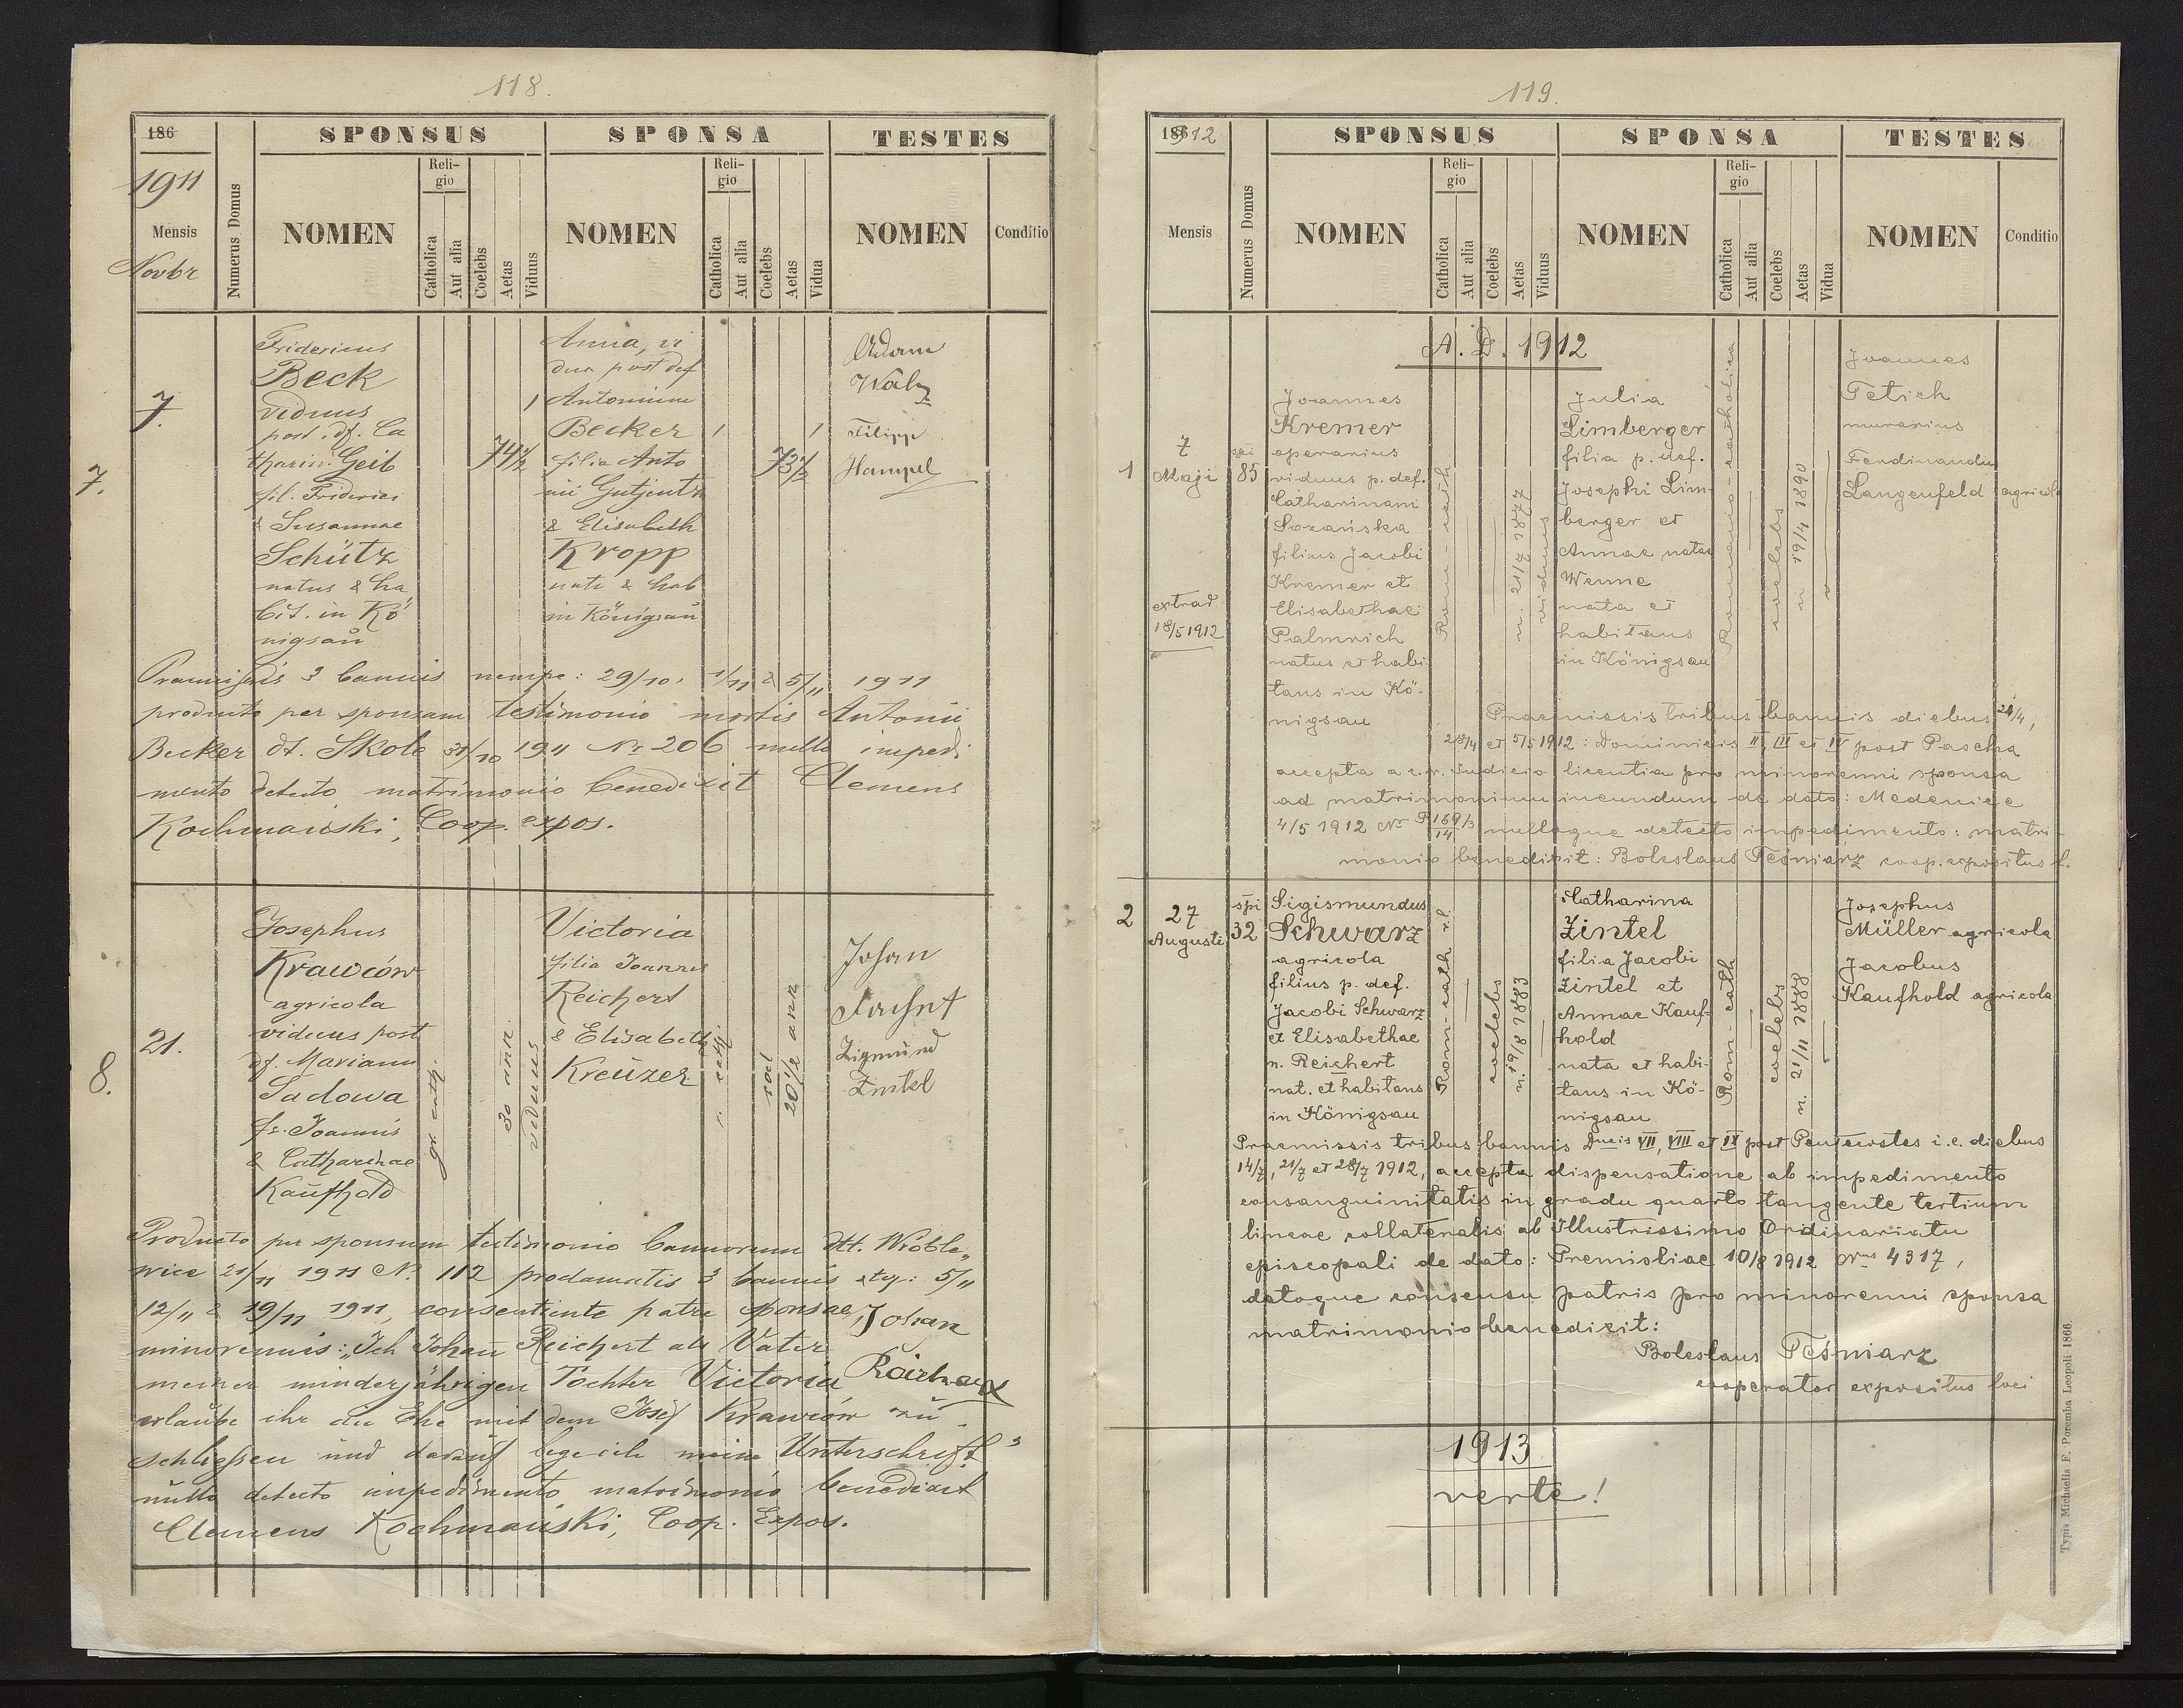 118.
186
1911
Mensis
Novbr
Numerus Domus
SPONSUS
SPONSA
TESTES
NOMEN
Religio
Catholica
Aut alia
Coelebs
Aetas
Viduus
NOMEN
Religio
Catholica
Aut alia
Coelebs
Aetas
Vidua
NOMEN
Conditio
7.
7.
Fridericus
Beck
viduus
post. df. Ca
tharin. Geib
fil. Friderici
& Susannae
Schütz
natus & ha
bit. in Kö
nigsaŭ
1
74 1/2
Anna, vi
dua post def
Antonium
Becker
filia Anto
nii Gutjentz
& Elisabeth
Kropp
nata & hab
in Königsaŭ
1
1
73 1/2
Adam
Walz
Filipp
Hampel
Praemissis 3 bannis nempe: 29/10, 1/11 & 5/11 1911
producto per sponsam testimonio mortis Antonii
Becker dt. Skole 31/10 1911 Nr 206 nullo impedi
mento detecto matrimonio benedixit Clemens
Kochmański, Coop. expos.
8.
21.
Josephus
Krawców
agricola
viduus post
df. Mariann
Sadowa
fs. Joannis
& Catharinae
Kaufhold
gr. cath.
30 ann.
viduus
Victoria
filia Joannis
Reichert
& Elisabeth
Kreŭzer
r. cath
coel
20 1/2 ann
Johan
Zigmŭnd
Zintel
Producto per sponsum testimonio bannorum dtt. Wróble„
wice 21/11 1911 N. 112 proclamatis 3 bannis 5/11
12/11 & 19/11 1911, consentiente patre sponsae,
minorennis: „Ich Johaŭ Reichert als Vater
meiner minderjährigen Tochter Victoria
erlaŭbe ihr die Ehe mit dem Josef Krawców zŭ
schließen ŭnd daraŭf lege ich meine Unterschrift"
Johan
Reichert
nŭllo detecto impedimento matrimonio benedixit
Clemens Kochmański, Coop. Expos.
119.
1912
Mensis
Numerus Domus
SPONSUS
SPONSA
TESTES
NOMEN
Religio
Catholica
Aut alia
Coelebs
Aetas
Viduus
NOMEN
Religio
Catholica
Aut alia
Coelebs
Aetas
Vidua
NOMEN
Conditio
A. D. 1912
1
7
Maji
extrad
18/5 1912
spi
85
Joannes
Kremer
operarius
viduus p. def.
Catharinam
Sozańska
filius Jacobi
Kremer et
Elisabethae
Palmrich
natus et habi
tans in Kö-
nigsau
Rom-cath.
n. 21/7 1877
viduus
Julia
Limberger
filia p. def.
Josephi Lim-
berger et
Annae natae
Wenne
nata et
habitans
in Königsau
Romano-catholica
coelebs
n 19/4 1890
Joannes
Petich
murarius
Ferdinandus
Langenfeld agricola
Praemissis tribus bannis diebus 21/4,
28/4 et 5/5 1912: Dominicis II, III et IV post Pascha
accepta a c.r. Judicio licentia pro minorenni sponsa
ad matrimonium ineundum de dato: Medenice
4/5 1912 Nr P 169/3 14 nulloque detecto impedimento: matri-
monio benedixit: Boleslaus Teśniarz coop. expositus l.
2
27
Augusti
spi
32
Sigismundus
Schwarz
agricola
filius p. def.
Jacobi Schwarz
et Elisabethae
n. Reichert
nat. et habitans
in Königsau
Rom-cath r.l.
coelebs
n. 19/8 1883
Catharina
Zintel
filia Jacobi
Zintel et
Annae Kauf-
hold
nata et habi-
tans in Kö-
nigsau
Rom-cath
coelebs
n. 21/11 1888
Josephus
Müller agricola
Jacobus
Kaufhold agricola
Praemissis tribus bannis Dncis VII, VIII et IX post Pentecostes i.e. diebus
14/7, 21/7 et 28/7 1912, accepta dispensatione ab impedimento
consanguinitatis in gradu quarto tangente tertium
lineae collateralis ab Illustrissimo Ordinariatu
episcopali de dato: Premisliae 10/8 1912 Nrus 4317,
datoque consensu patris pro minorenni sponsa
matrimonio benedixit:
Boleslaus Teśniarz
cooperator expositus loci
1913
verte!
Typis Michaelis F. Poremba Leopoli 1866.